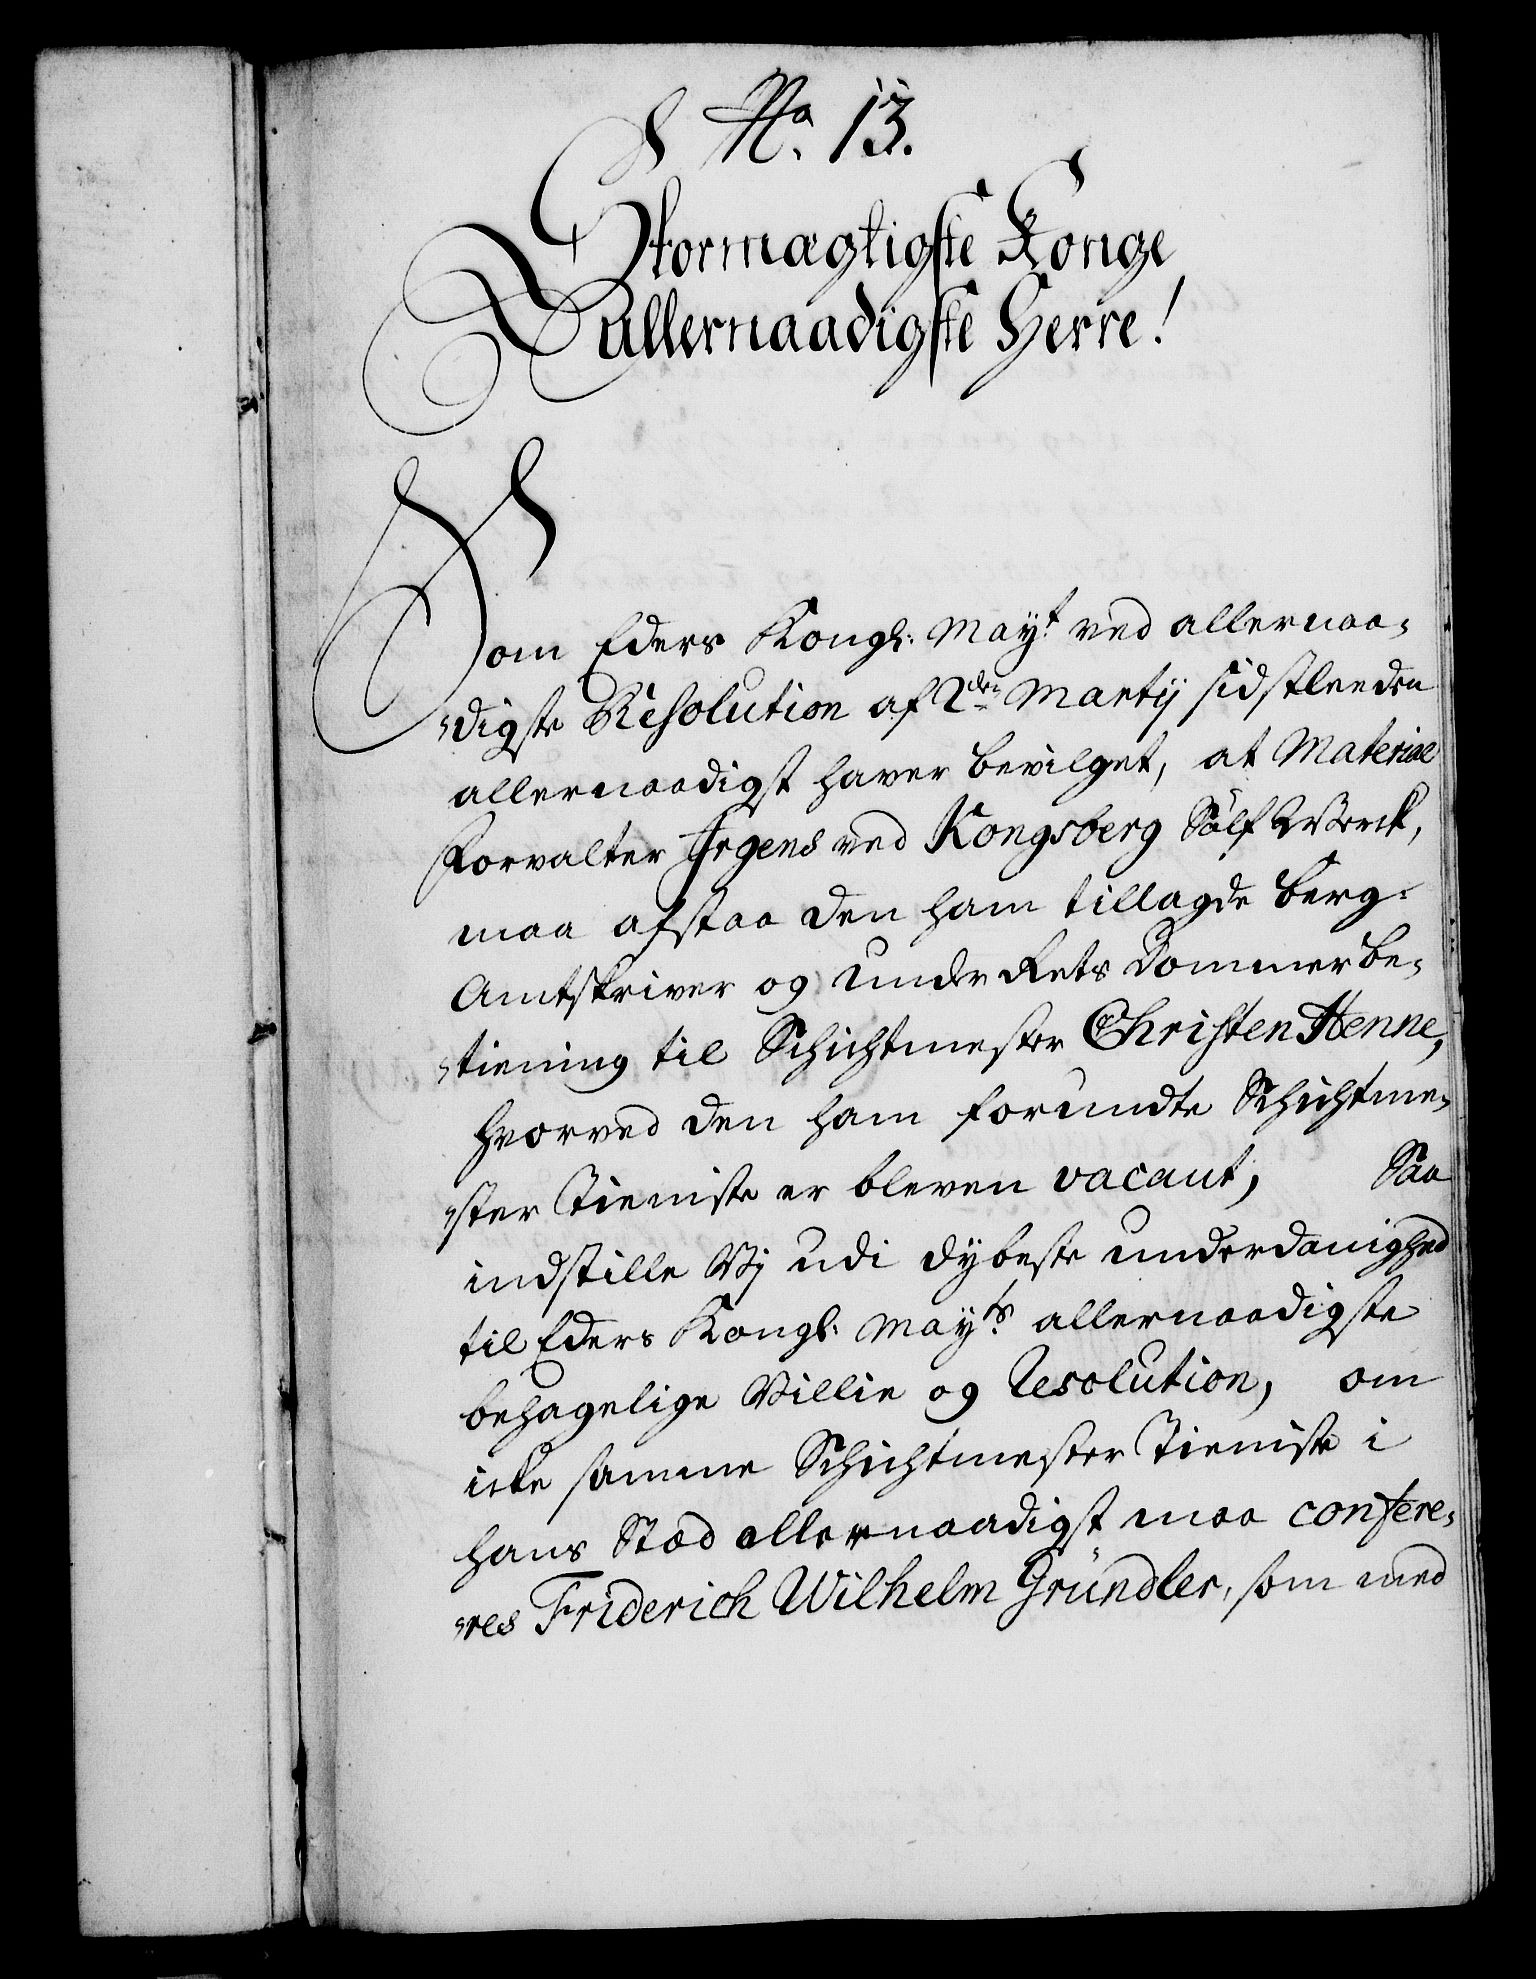 No. 13.
Stormægtigste Konge
allernaadigste Herre!
Som Eders Kongl: Mayt ved allernaa-
digste Resolution af 2den Martij sidstleeden
allernaadigst haver bevilget, at Material
Forvalter Irgens ved Kongsberg Sölf Werck,
maa afstaa den ham tillagde Berg-
Amtskriver og Under Rets Dommer be-
tiening til Schichtmester Christen Henne,
hvorved den ham forundte Schichtme-
ster Tieniste er bleven vacant, Saa
indstille Vj udi dybeste underdanighed
til Eders Kongl: Mayts allernaadigste
behagelige Villie og Resolution, om
icke samme Schichtmester Tieniste i
hans Stæd allernaadigst maa confere-
res Friderich Wilhelm Gründler, som med